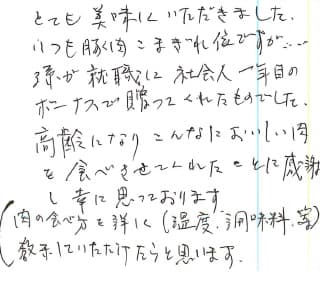 とても美味しくいただきました.
いつも豚肉こまぎれ位ですが.....
孫が就職し社会人一年目の
ボーナスで贈ってくれたものでした.
高齢になりこんなにおいしい肉
を食べさせてくれたことに感謝
し幸に思っております
(肉の食べ方を詳しく(温度.調味料.等)
教示していただけたらと思います.